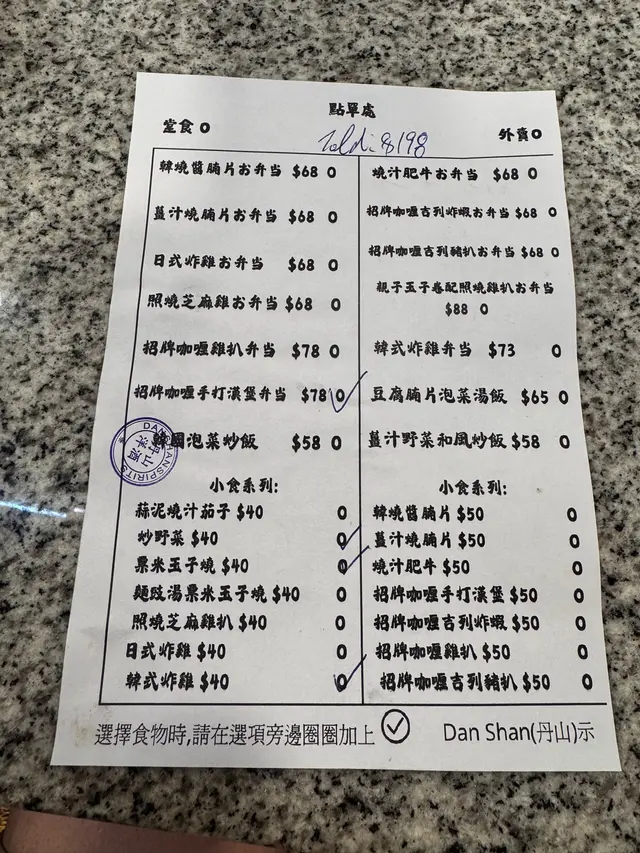 點單處
堂食 O
外賣 O
8198
韓燒醬腩片お弁当 $68 O
薑汁燒腩片お弁当 $68 O
日式炸雞お弁当 $68 O
照燒芝麻雞お弁当 $68 O
招牌咖喱雞扒弁当 $78 O
招牌咖喱手打漢堡弁当 $78 O
韓國泡菜炒飯 $58 O
燒汁肥牛お弁当 $68 O
招牌咖喱吉列炸蝦お弁当 $68 O
招牌咖喱吉列豬扒お弁当 $68 O
親子玉子卷配照燒雞扒お弁当
$88 O
韓式炸雞弁当 $73 O
豆腐腩片泡菜湯飯 $65 O
薑汁野菜和風炒飯 $58 O
小食系列:
蒜泥燒汁茄子 $40 O
炒野菜 $40 O
粟米玉子燒 $40 O
麵豉湯粟米玉子燒 $40 O
照燒芝麻雞扒 $40 O
日式炸雞 $40 O
韓式炸雞 $40 O
小食系列:
韓燒醬腩片 $50 O
薑汁燒腩片 $50 O
燒汁肥牛 $50 O
招牌咖喱手打漢堡 $50 O
招牌咖喱吉列炸蝦 $50 O
招牌咖喱雞扒 $50 O
招牌咖喱吉列豬扒 $50 O
選擇食物時,請在選項旁邊圈圈加上
Dan Shan(丹山)示